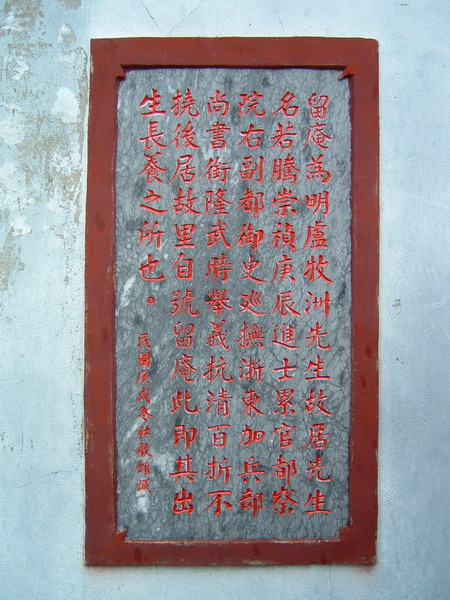 留庵為明盧牧洲先生故居先生
名若騰崇禎庚辰進士累官都察
院右副都御史廵撫浙東加兵部
尚書銜隆武時舉義抗清百折不
撓後居故里自號留庵此即其出
生長養之所也。
民國庚戌冬社教館識